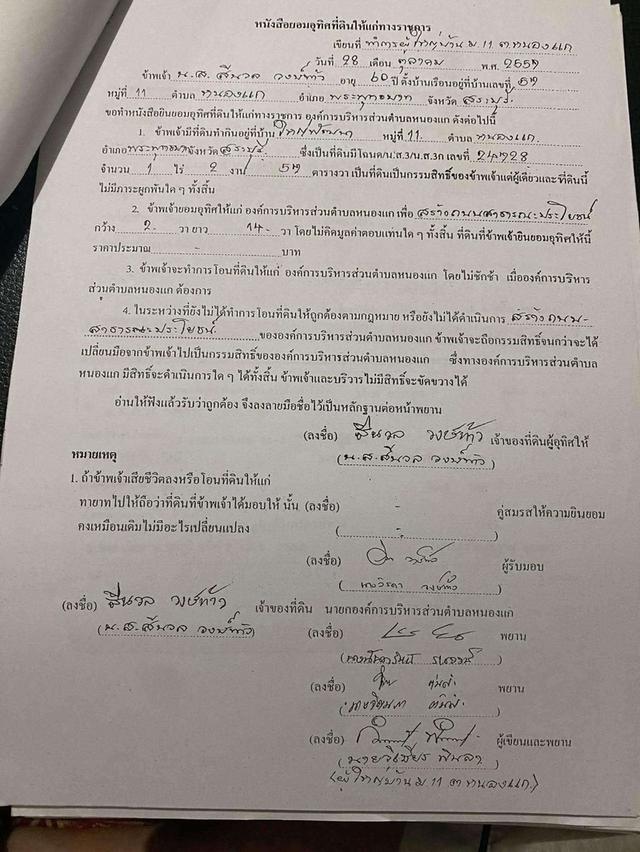 หนังสือยอมอุทิศที่ดินให้แก่ทางราชการ
เขียนที่ ที่ทำการผู้ใหญ่บ้าน ม.11 ต.หนองแก
วันที่ 28 เดือน ตุลาคม พ.ศ. 2557
ข้าพเจ้า น.ส. สีนวล วงษ์ท้าว อายุ 60 ปี ตั้งบ้านเรือนอยู่ที่บ้านเลขที่ 57
หมู่ที่ 11 ตำบล หนองแก อำเภอ พระพุทธบาท จังหวัด สระบุรี
ขอทำหนังสือยินยอมอุทิศที่ดินให้แก่ทางราชการ องค์การบริหารส่วนตำบลหนองแก ดังต่อไปนี้
1. ข้าพเจ้ามีที่ดินทำกินอยู่ที่บ้าน ใหม่พัฒนา หมู่ที่ 11 ตำบล หนองแก
อำเภอพระพุทธบาทจังหวัด สระบุรี ซึ่งเป็นที่ดินมีโฉนด/น.ส.3/น.ส.3ก เลขที่
จำนวน 1 ไร่ 2 งาน 57 ตารางวา เป็นที่ดินเป็นกรรมสิทธิ์ของข้าพเจ้าแต่ผู้เดียวและที่ดินนี้
ไม่มีภาระผูกพันใด ๆ ทั้งสิ้น
2. ข้าพเจ้ายอมอุทิศให้แก่ องค์การบริหารส่วนตำบลหนองแก เพื่อ สร้างถนนสาธารณะประโยชน์
กว้าง 2 วา ยาว 14 วา โดยไม่คิดมูลค่าตอบแทนใด ๆ ทั้งสิ้น ที่ดินที่ข้าพเจ้ายินยอมอุทิศให้นี้
ราคาประมาณ - บาท
3. ข้าพเจ้าจะทำการโอนที่ดินให้แก่ องค์การบริหารส่วนตำบลหนองแก โดยไม่ชักช้า เมื่อองค์การบริหาร
ส่วนตำบลหนองแก ต้องการ
4. ในระหว่างที่ยังไม่ได้ทำการโอนที่ดินให้ถูกต้องตามกฎหมาย หรือยังไม่ได้ดำเนินการ สร้างถนน-
สาธารณะประโยชน์ ขององค์การบริหารส่วนตำบลหนองแก ข้าพเจ้าจะถือกรรมสิทธิ์จนกว่าจะได้
เปลี่ยนมือจากข้าพเจ้าไปเป็นกรรมสิทธิ์ขององค์การบริหารส่วนตำบลหนองแก ซึ่งทางองค์การบริหารส่วนตำบล
หนองแก มีสิทธิ์จะดำเนินการใด ๆ ได้ทั้งสิ้น ข้าพเจ้าและบริวารไม่มีสิทธิ์จะขัดขวางได้
อ่านให้ฟังแล้วรับว่าถูกต้อง จึงลงลายมือชื่อไว้เป็นหลักฐานต่อหน้าพยาน
(ลงชื่อ) สีนวล วงษ์ท้าว เจ้าของที่ดินผู้อุทิศให้
(น.ส. สีนวล วงษ์ท้าว)
หมายเหตุ
1. ถ้าข้าพเจ้าเสียชีวิตลงหรือโอนที่ดินให้แก่
ทายาทไปให้ถือว่าที่ดินที่ข้าพเจ้าได้มอบให้ นั้น (ลงชื่อ) - คู่สมรสให้ความยินยอม
คงเหมือนเดิมไม่มีอะไรเปลี่ยนแปลง ( - )
(ลงชื่อ) ผู้รับมอบ
(ลงชื่อ) สีนวล วงษ์ท้าว เจ้าของที่ดิน นายกองค์การบริหารส่วนตำบลหนองแก
(น.ส. สีนวล วงษ์ท้าว) (ลงชื่อ) พยาน
(ลงชื่อ) พยาน
(ลงชื่อ) ผู้เขียนและพยาน
(นายวิเชียร พินลา)
(ผู้ใหญ่บ้าน ม.11 ต.หนองแก)